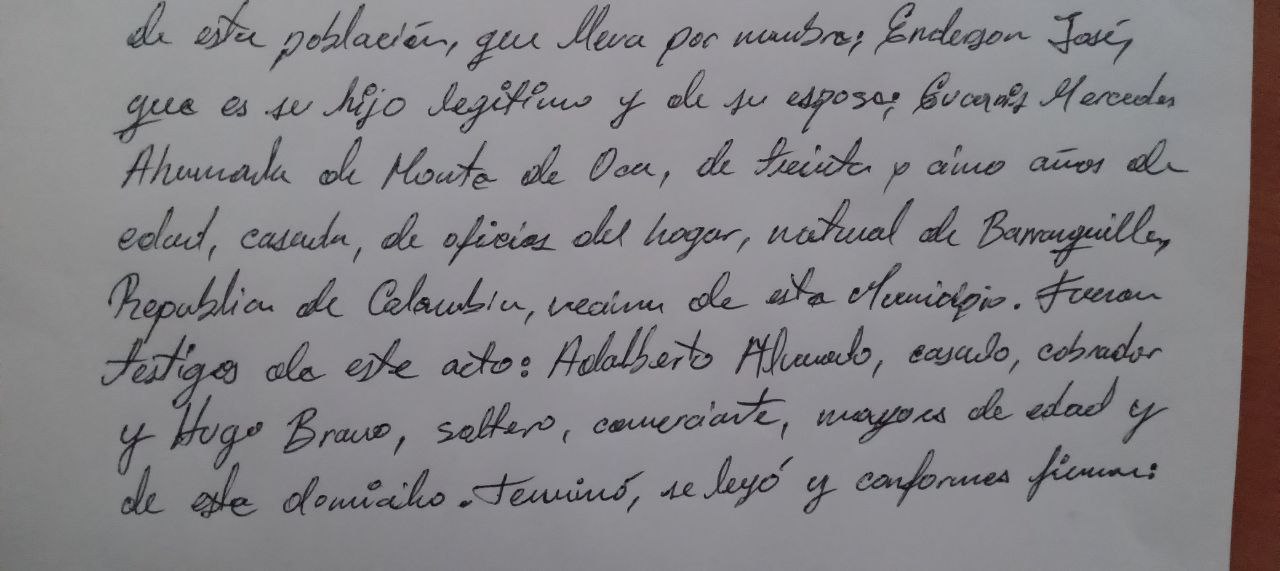 de esta población, que lleva por nombre; Enderson José,
que es su hijo legítimo y de su esposa; Mercedes
Ahumada de Monte de Oca, de treinta y cinco años de
edad, casada, de oficios del hogar, natural de Barranquilla,
Republica de Colombia, vecina de este Municipio. Fueron
testigos de este acto: Adalberto Ahumado, casado, cobrador
y Hugo Bravo, soltero, comerciante, mayores de edad y
de este domicilio. Terminó, se leyó y conformes firman: